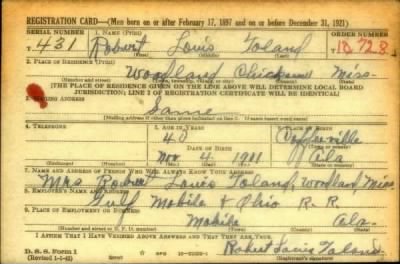 REGISTRATION CARD—(Men born on or after February 17, 1897 and on or before December 31, 1921)
SERIAL NUMBER 1. NAME (Print) ORDER NUMBER
T 431 Robert Louis Toland 10,728
(First) (Middle) (Last)
2. PLACE OF RESIDENCE (Print)
Woodland Chickasaw Miss.
(Number and street) (Town, township, village, or city) (County) (State)
[THE PLACE OF RESIDENCE GIVEN ON THE LINE ABOVE WILL DETERMINE LOCAL BOARD
JURISDICTION; LINE 2 OF REGISTRATION CERTIFICATE WILL BE IDENTICAL]
3. MAILING ADDRESS
Same
4. TELEPHONE 5. AGE IN YEARS
40
DATE OF BIRTH
Nov. 4, 1911 Ala
(Exchange) (Number) (Mo.) (Day) (Yr.) (State or country)
7. NAME AND ADDRESS OF PERSON WHO WILL ALWAYS KNOW YOUR ADDRESS
Mrs Robert Louis Toland, Woodland Miss
8. EMPLOYER'S NAME AND ADDRESS
Gulf Mobile & Ohio R.R
9. PLACE OF EMPLOYMENT OR BUSINESS
Mobile Ala.
(Number and street or R. F. D. number) (Town) (County) (State)
I AFFIRM THAT I HAVE VERIFIED ABOVE ANSWERS AND THAT THEY ARE TRUE.
Robert Louis Toland
D. S. S. Form 1
(Revised 1-1-42) (Registrant's signature)